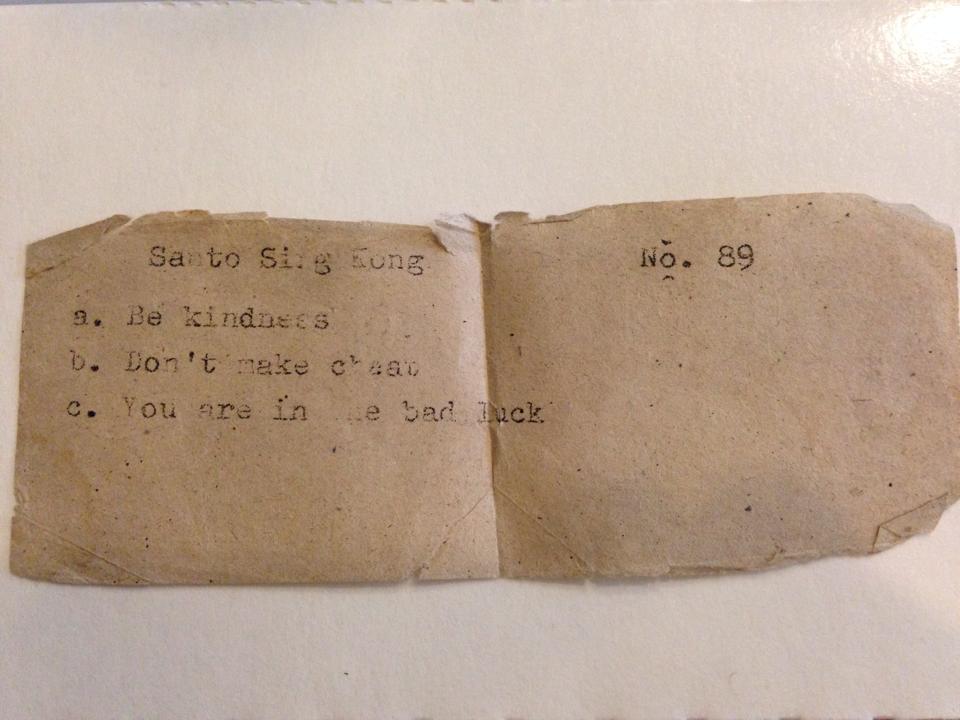 Santo Sing Kong No. 89
a. Be kindness
b. Don't make cheat
c. You are in the bad luck